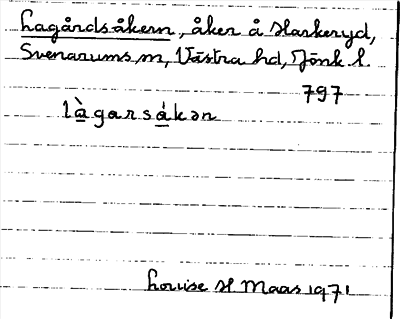 Lagårdsåkern, åker å Harkeryd,
Svenarums sn, Västra hd, Jönk l.
797
là̱garså̱kən
Louise H Maas 1971